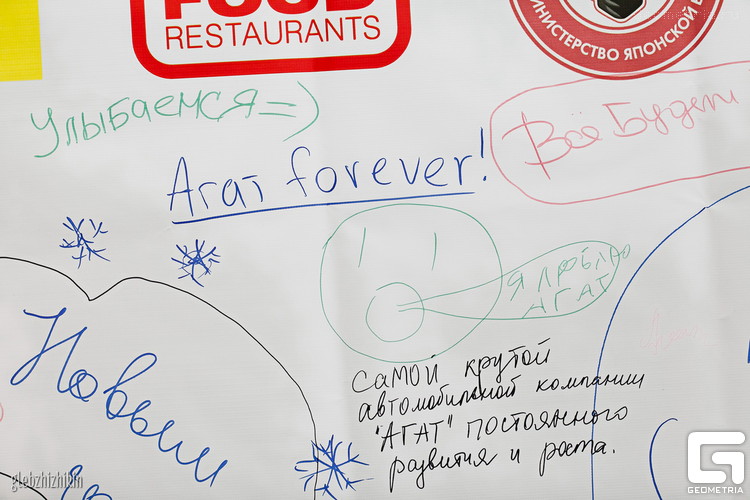 FOOD
RESTAURANTS
МИНИСТЕРСТВО ЯПОНСКОЙ
Улыбаемся =)
Всё Будет
Агат forever!
Я ЛЮБЛЮ
АГАТ
Новым
самой крутой
автомобильной компании
"АГАТ" постоянного
развития и роста.
glebzhizhkin
G
GEOMETRIA